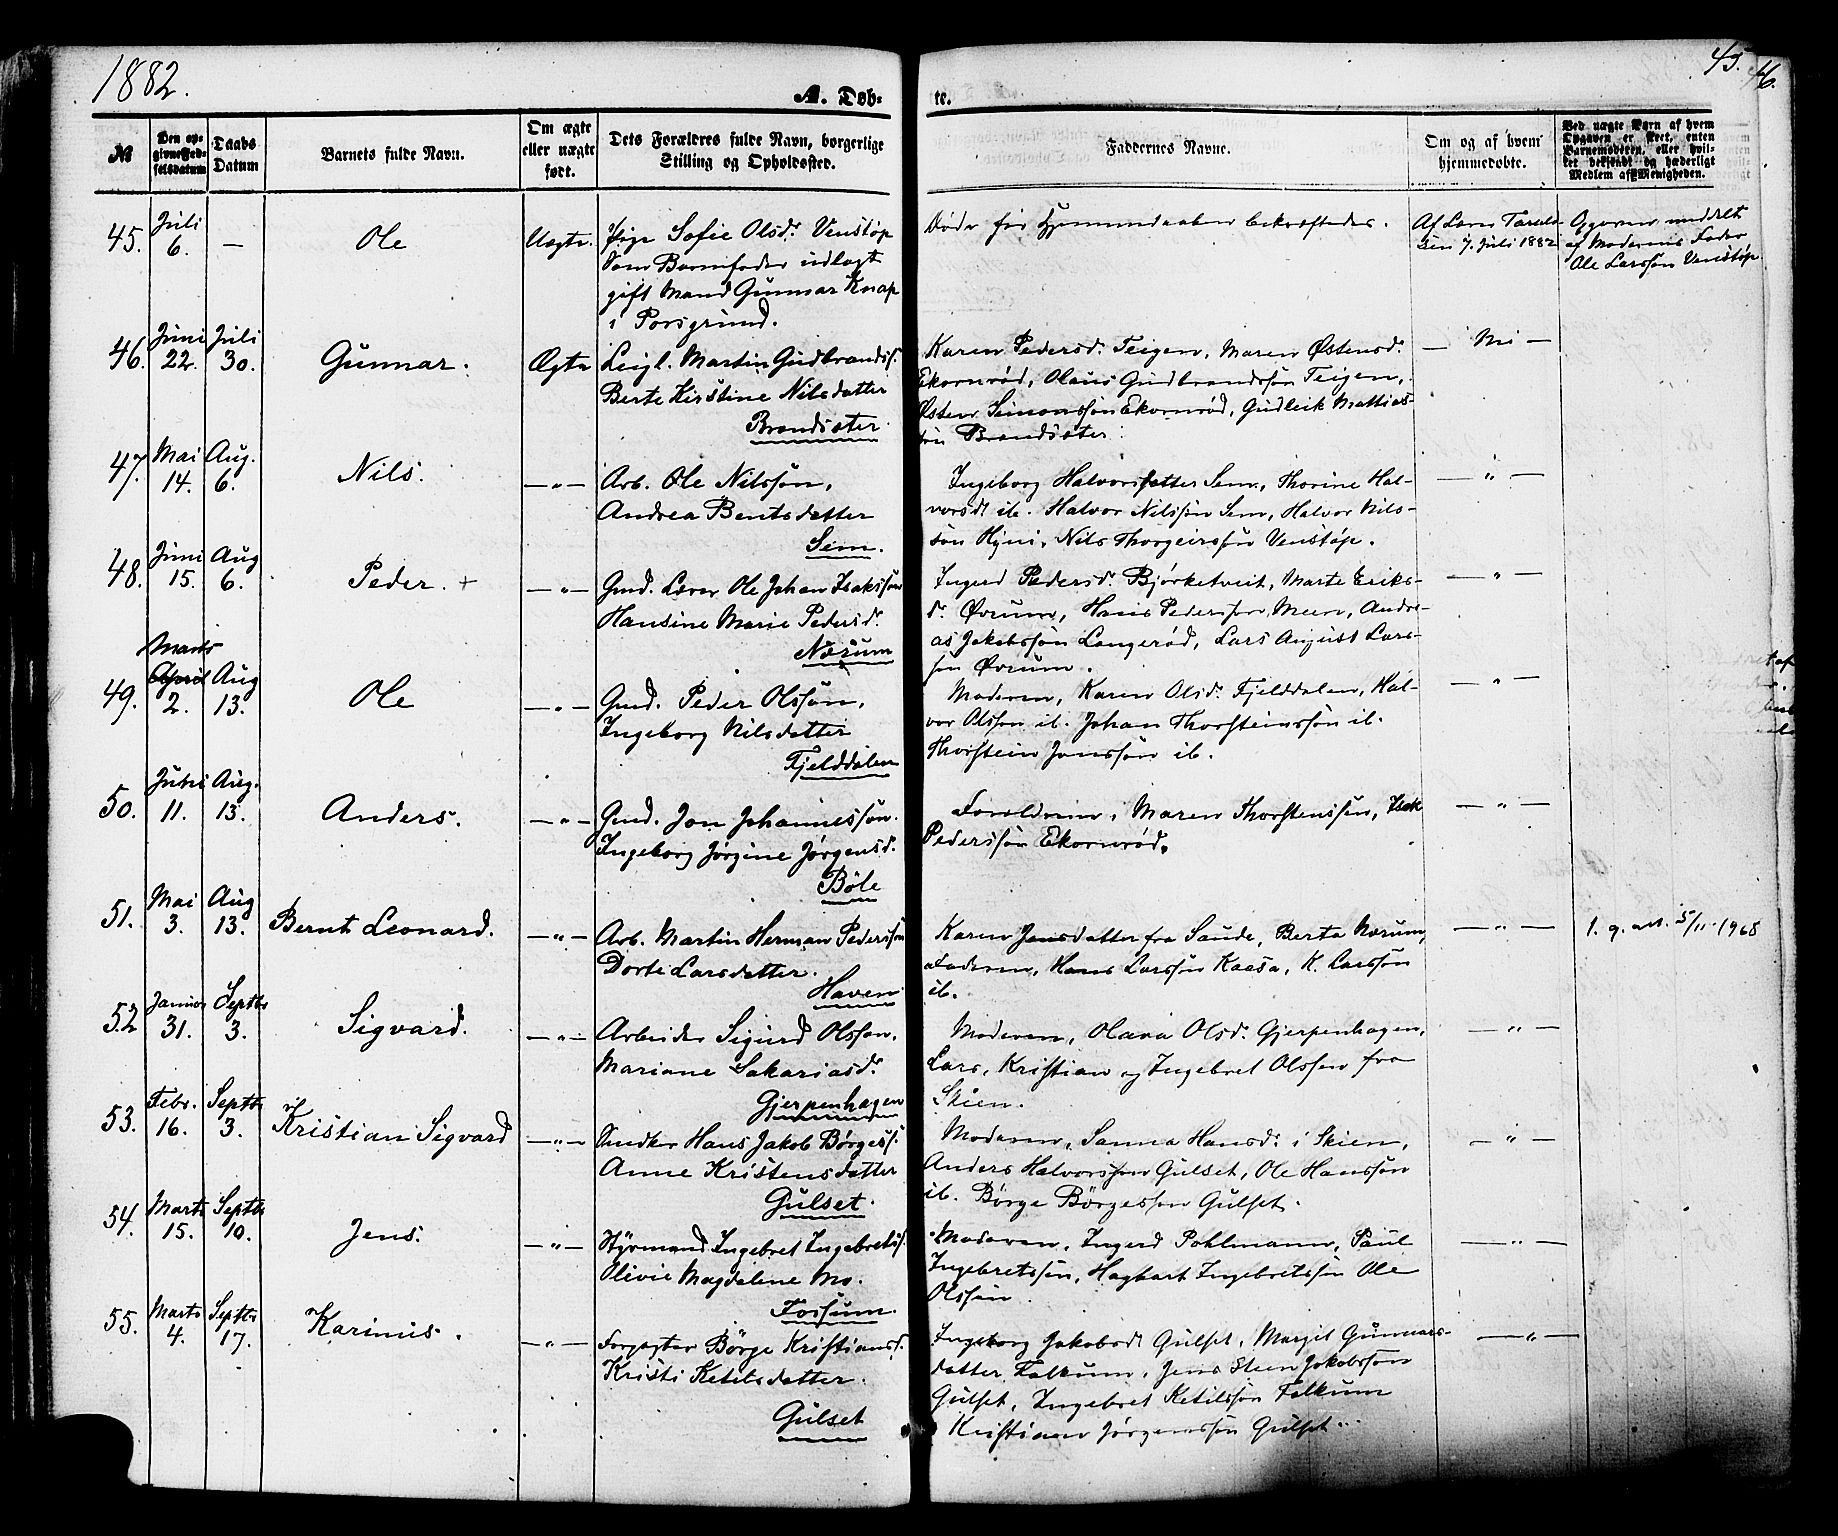 1882.
A. Døb-
te.
45.
46.
№
Den op-
givne Fød-
selsdatum
Daabs
Datum
Barnets fulde Navn.
Om ægte
eller uægte
født.
Dets Forældres fulde Navn, borgerlige
Stilling og Opholdssted.
Faddernes Navne.
Om og af hvem
hjemmedøbt.
Ved uægte Børn af hvem
Opgaven er skeet, enten
Barnemoderen, eller hvil-
ket bekjendt og hæderligt
Medlem af Menigheden.
45.
Juli
6.
—
Ole
Uægte.
Pige Sofie Olsdr. Venstøp
Som Barnefader udlagt
gift Mand Gunnar Knap
i Porsgrund.
Døde før Hjemmedaaben bekræftedes.
Af Lars
7. Juli 1882
Opgaven meddelt
af Moderens Fader
Ole Larssøn Venstøp
46.
Juni
22.
Juli
30.
Gunnar.
Ægte
Leigl. Martin Gudbrandss.
Berte Kirstine Nilsdatter
Brandsæter.
Karen Pedersd. Teigen, Maren Østensd.
Ekornrød, Olaus Gudbrandssøn Teigen,
Østen Simonssøn Ekornrød, Gudleik Mattias-
søn Brandsæter.
— Nei —
47.
Mai
14.
Aug.
6.
Nils.
— " —
Arb. Ole Nilssøn,
Andrea Bentsdatter
Sem.
Ingeborg Halvorsdatter Sem, Thorine Hal-
vorsdt ib. Halvor Nilssøn Sem, Halvor Nils-
søn Hyni, Nils Thorgeirssøn Venstøp.
— " —
48.
Juni
15.
Aug
6.
Peder. +
— " —
Gmd. Lærer Ole Johan Isakssøn
Hansine Marie Pedersd.
Nærum
Ingerd Pedersd. Bjørketveit, Marte Eriks-
d. Øvrum, Hans Pederssøn Meen, Andre-
as Jakobssøn Langerød, Lars August Lars-
søn Øvrum.
— " —
49.
Marts
April
2.
Aug
13.
Ole
— " —
Gmd. Peder Olssøn,
Ingeborg Nilsdatter
Fjelddalen
Moderen, Karen Olsd. Fjelddalen, Hal-
vor Olssøn ib. Johan Thorsteinssøn ib.
Thorstein Jonssøn ib.
— " —
50.
Juni
11.
Aug.
13.
Anders.
— " —
Gmd. Jon Johannessøn.
Ingeborg Jørgine Jørgensd.
Bøle
Forældrene, Maren Thorstenssøn, Isak
Pederssøn Ekornrød.
— " —
51.
Mai
3.
Aug
13.
Bernt Leonard.
— " —
Arb. Martin Herman Pederssøn
Dorte Larsdatter.
Haven
Karen Jensdatter fra Saude, Berta Nærum,
Faderen, Hans Larssøn Kaasa, K. Larssøn
ib.
— " —
1. g. att. 5/11-1968
52
Januar
31.
Septbr
3.
Sigvard.
— " —
Arbeider Sigurd Olssøn,
Mariane Sakariasd.
Gjerpenhagen
Moderen, Olava Olsd. Gjerpenhagen,
Lars, Kristian og Ingebret Olssøn fra
Skien.
— " —
53.
Febr.
16.
Septbr
3.
Kristian Sigvard
— " —
Snedker Hans Jakob Børgess.
Anne Kristensdatter
Gulset.
Moderen, Sanna Hansd. i Skien,
Anders Halvorssøn Gulset, Ole Hanssøn
ib. Børge Børgessøn Gulset.
— " —
54.
Marts
15.
Septbr
10.
Jens.
— " —
Styrmand Ingebret Ingebretss.
Olivie Magdalene Mo.
Fossum.
Moderen, Ingerd Pohlmann, Paul
Ingebretssøn, Hagbart Ingebretssøn Ole
Olssøn
— " —
55.
Marts
4.
Septbr
17.
Karinus.
— " —
Forpagter Børge Kristianss.
Kristi Ketilsdatter.
Gulset
Ingeborg Jakobsdt Gulset, Margit Gunnars-
datter Falkum, Jens Steen Jakobssøn
Gulset, Ingebret Ketilssøn Falkum
Kristian Jørgenssøn Gulset.
— " —